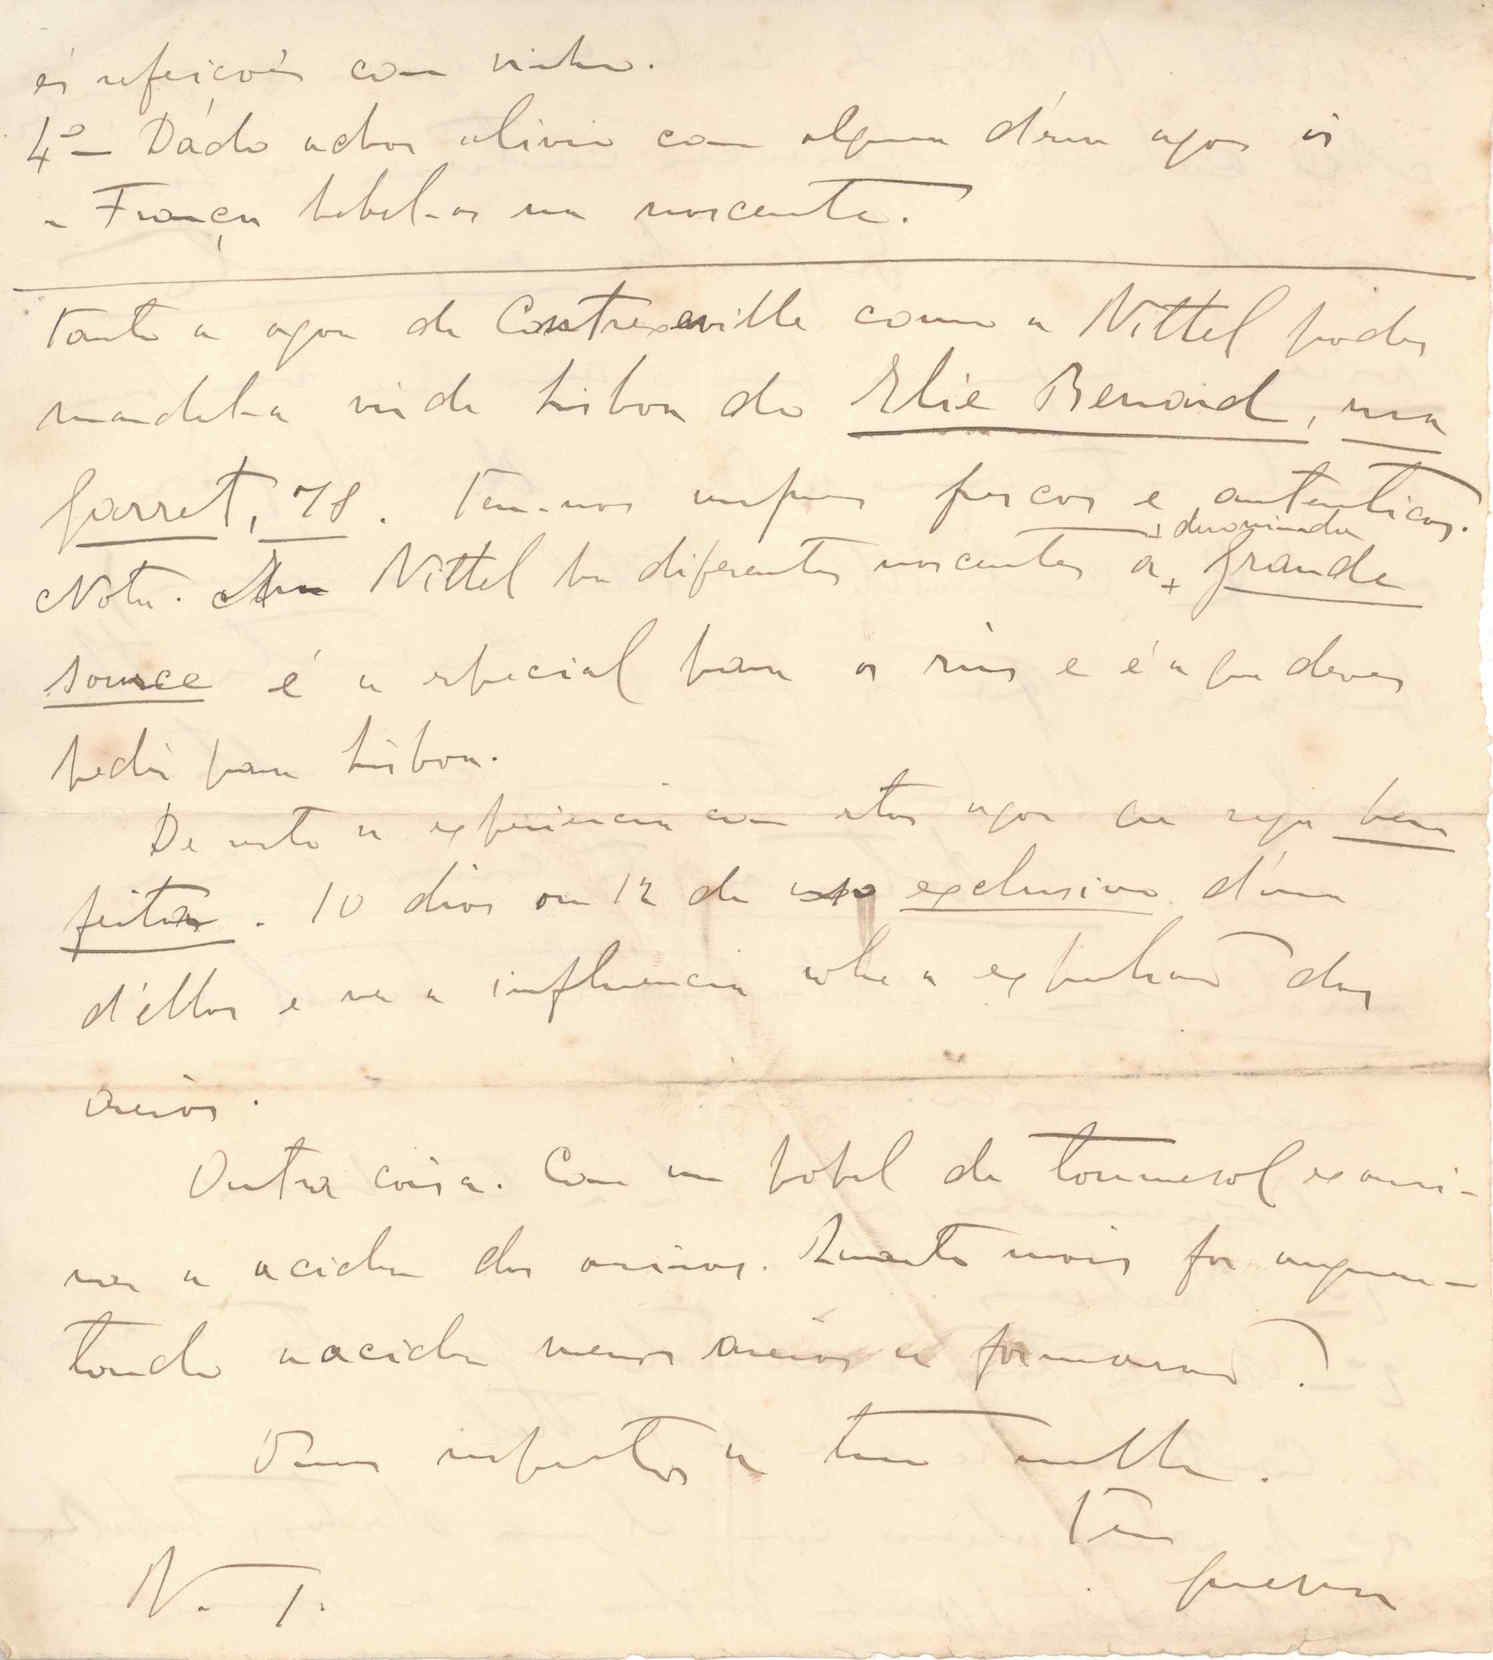 ás refeições com vinho.
4º - Dado achar alivio com alguma d'essas agoas ir
a França bebel-as na nascente.
Tanto a agoa de Contrexeville como a Vittel podes
mandal-a vir de Lisboa do Elie Benard, rua
Garret, 78. Tem-nas sempre frescas e autenticas.
denominada
Nota. Em Vittel ha diferentes nascentes a + Grande
source é a especial para os rins e é a que deves
pedir para Lisboa.
De resto a experiencia com estas agoas que seja bem
feita. 10 dias ou 12 de uso exclusivo d'uma
d'ellas e ver a influencia sobre a expulsão das
areias.
Outra coisa. Com um papel de tournesol exami-
nar a acidez das ourinas. Quanto mais for augmen-
tando a acidez menos areias se formarão?
Meus respeitos a tua mulher.
Teu
N. T.